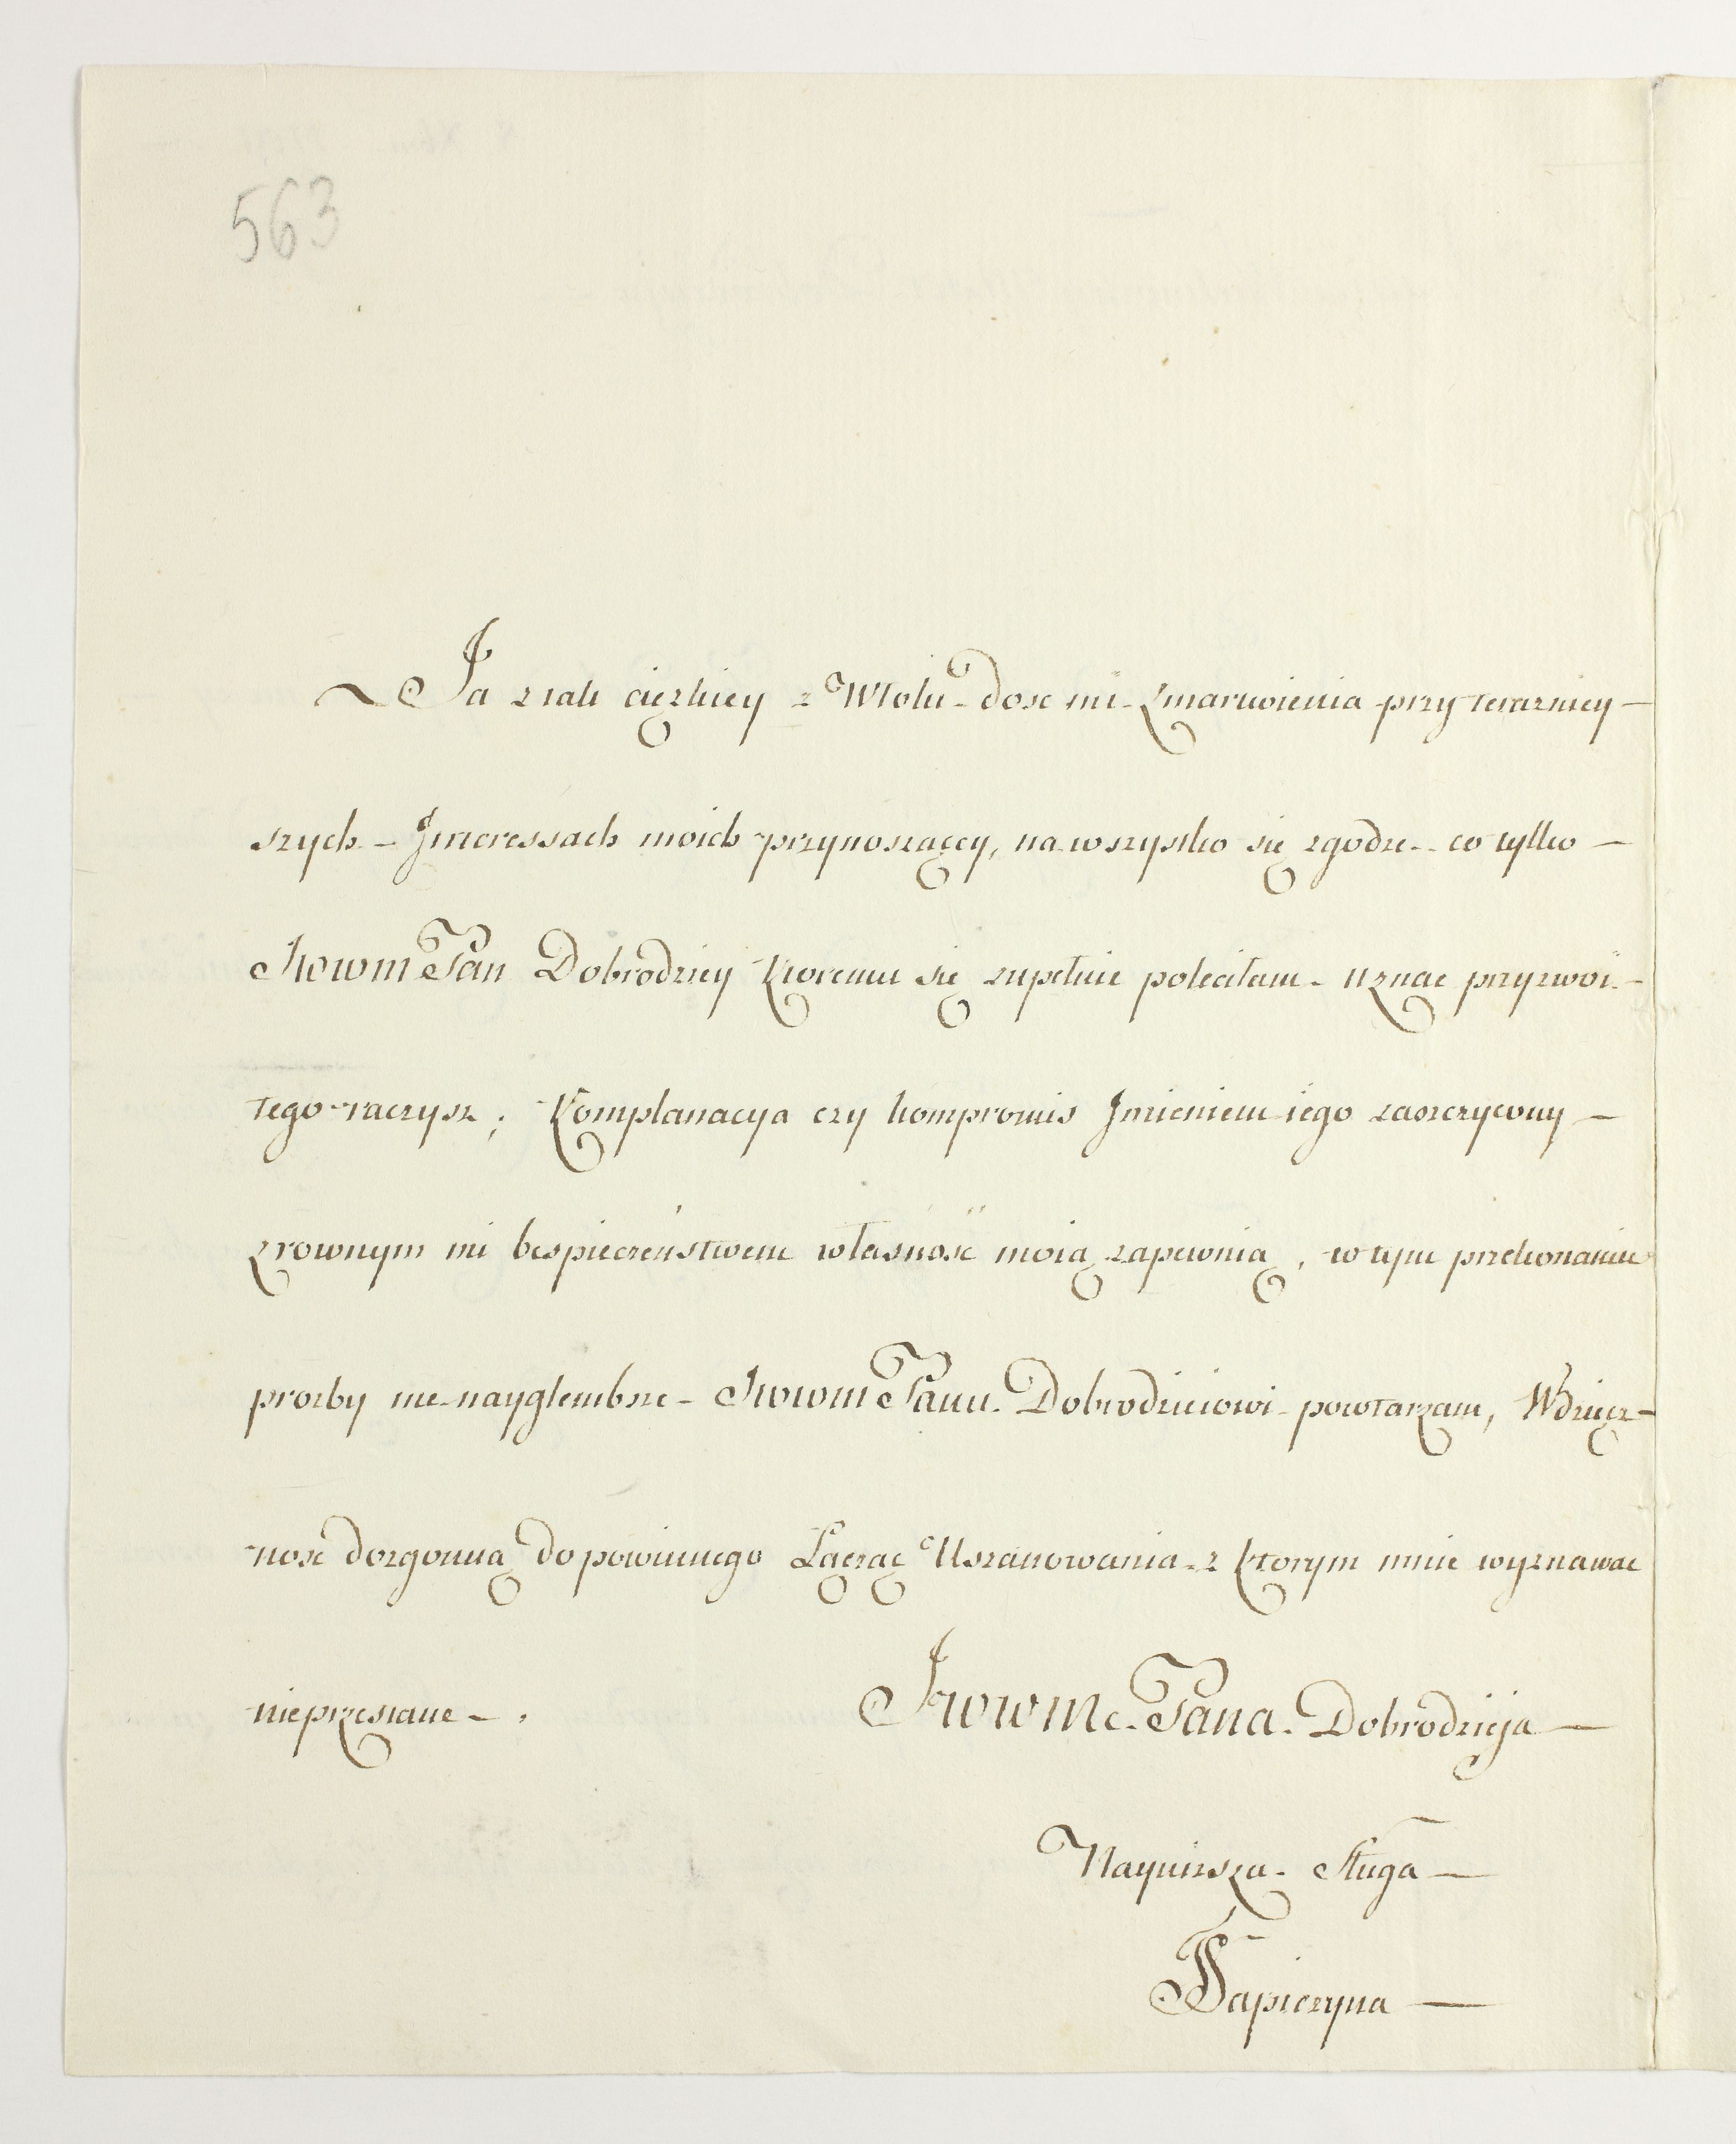 563
Ja z tak cięzkiey z Włoki dosc mi Zmartwienia przy terazniey-
szych Jnteressach moich przynoszącey, na wszystko się zgodze co tylko
JWWM Pan Dobrodziey Ktoremu się zupełnie poleciłam uznac przyzwoi-
tego raczysz; Komplanacya czy kompromis Jmieniem iego zaszczycony
z rownym mi bespieczeństwem własność moią zapewnią, w tym przekonaniu
prozby me nayglembsze JWWM Panu Dobrodzieiowi powtarzam, Wdzięcz-
nosc dozgonną do powinnego Łącząc Uszanowania z ktorym mnie wyznawac
nieprzestane.
JWWMc Pana Dobrodzieja
Nayniższa Sługa
Sapieżyna